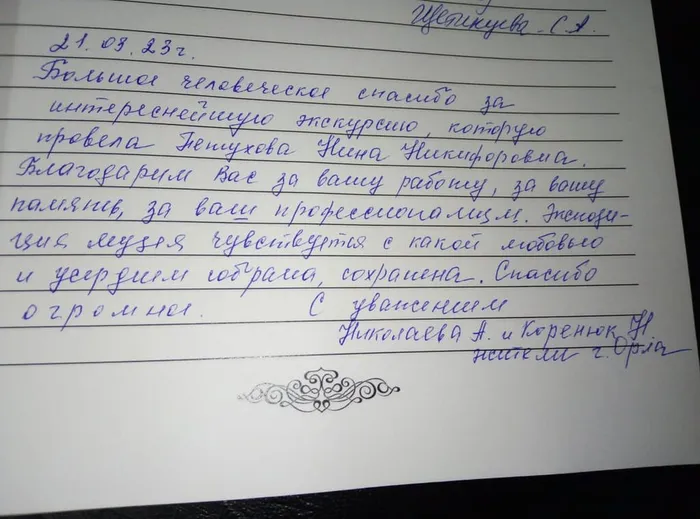 Щетинцева С.А.
21.03.23г.
Большое человеческое спасибо за
интереснейшую экскурсию, которую
провела Петухова Нина Никифоровна.
Благодарим Вас за вашу работу, за вашу
память, за ваш профессионализм. Экспози-
ция музея чувствуется с какой любовью
и усердием собрана, сохранена. Спасибо
огромное. С уважением
Николаева А. и Коренюк Н
жители г. Орла